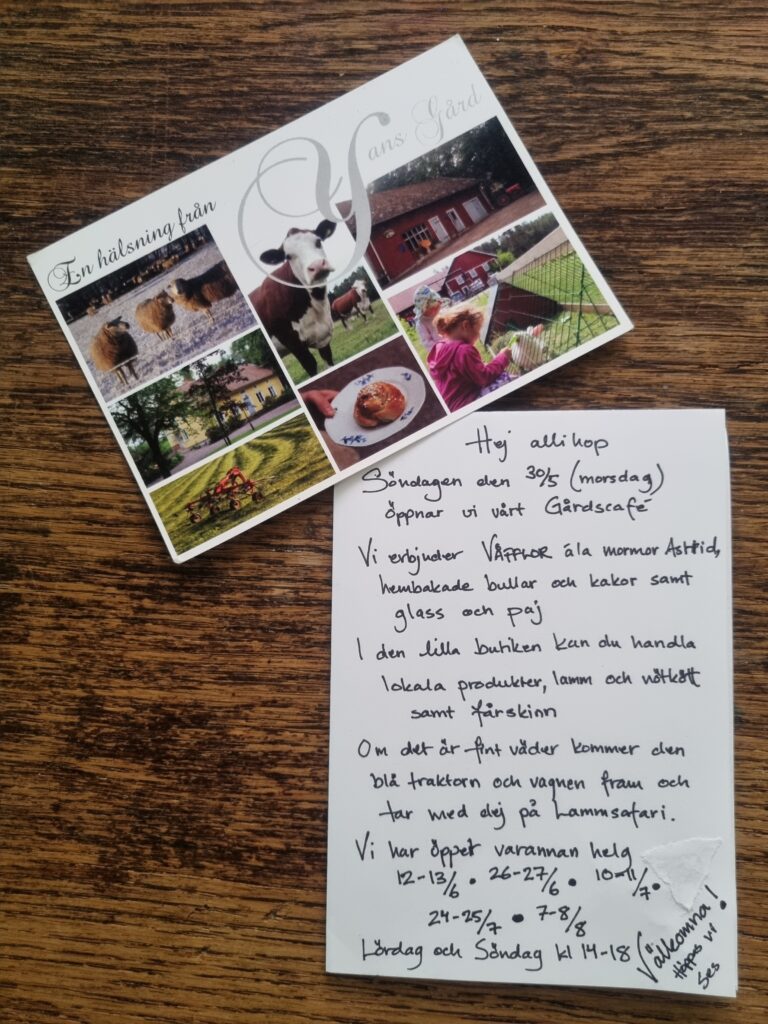 En hälsning från
Yans Gård
Hej allihop
Söndagen den 30/5 (morsdag)
öppnar vi vårt Gårdscafé
Vi erbjuder VÅFFLOR ála mormor Astrid,
hembakade bullar och kakor samt
glass och paj
I den lilla butiken kan du handla
lokala produkter, lamm och nötkött
samt fårskinn
Om det är fint väder kommer den
blå traktorn och vagnen fram och
tar med dej på Lammsafari.
Vi har öppet varannan helg
12-13/6 • 26-27/6 • 10-11/7 •
24-25/7 • 7-8/8
Lördag och Söndag kl 14-18
Välkomna!
Hoppas vi
ses